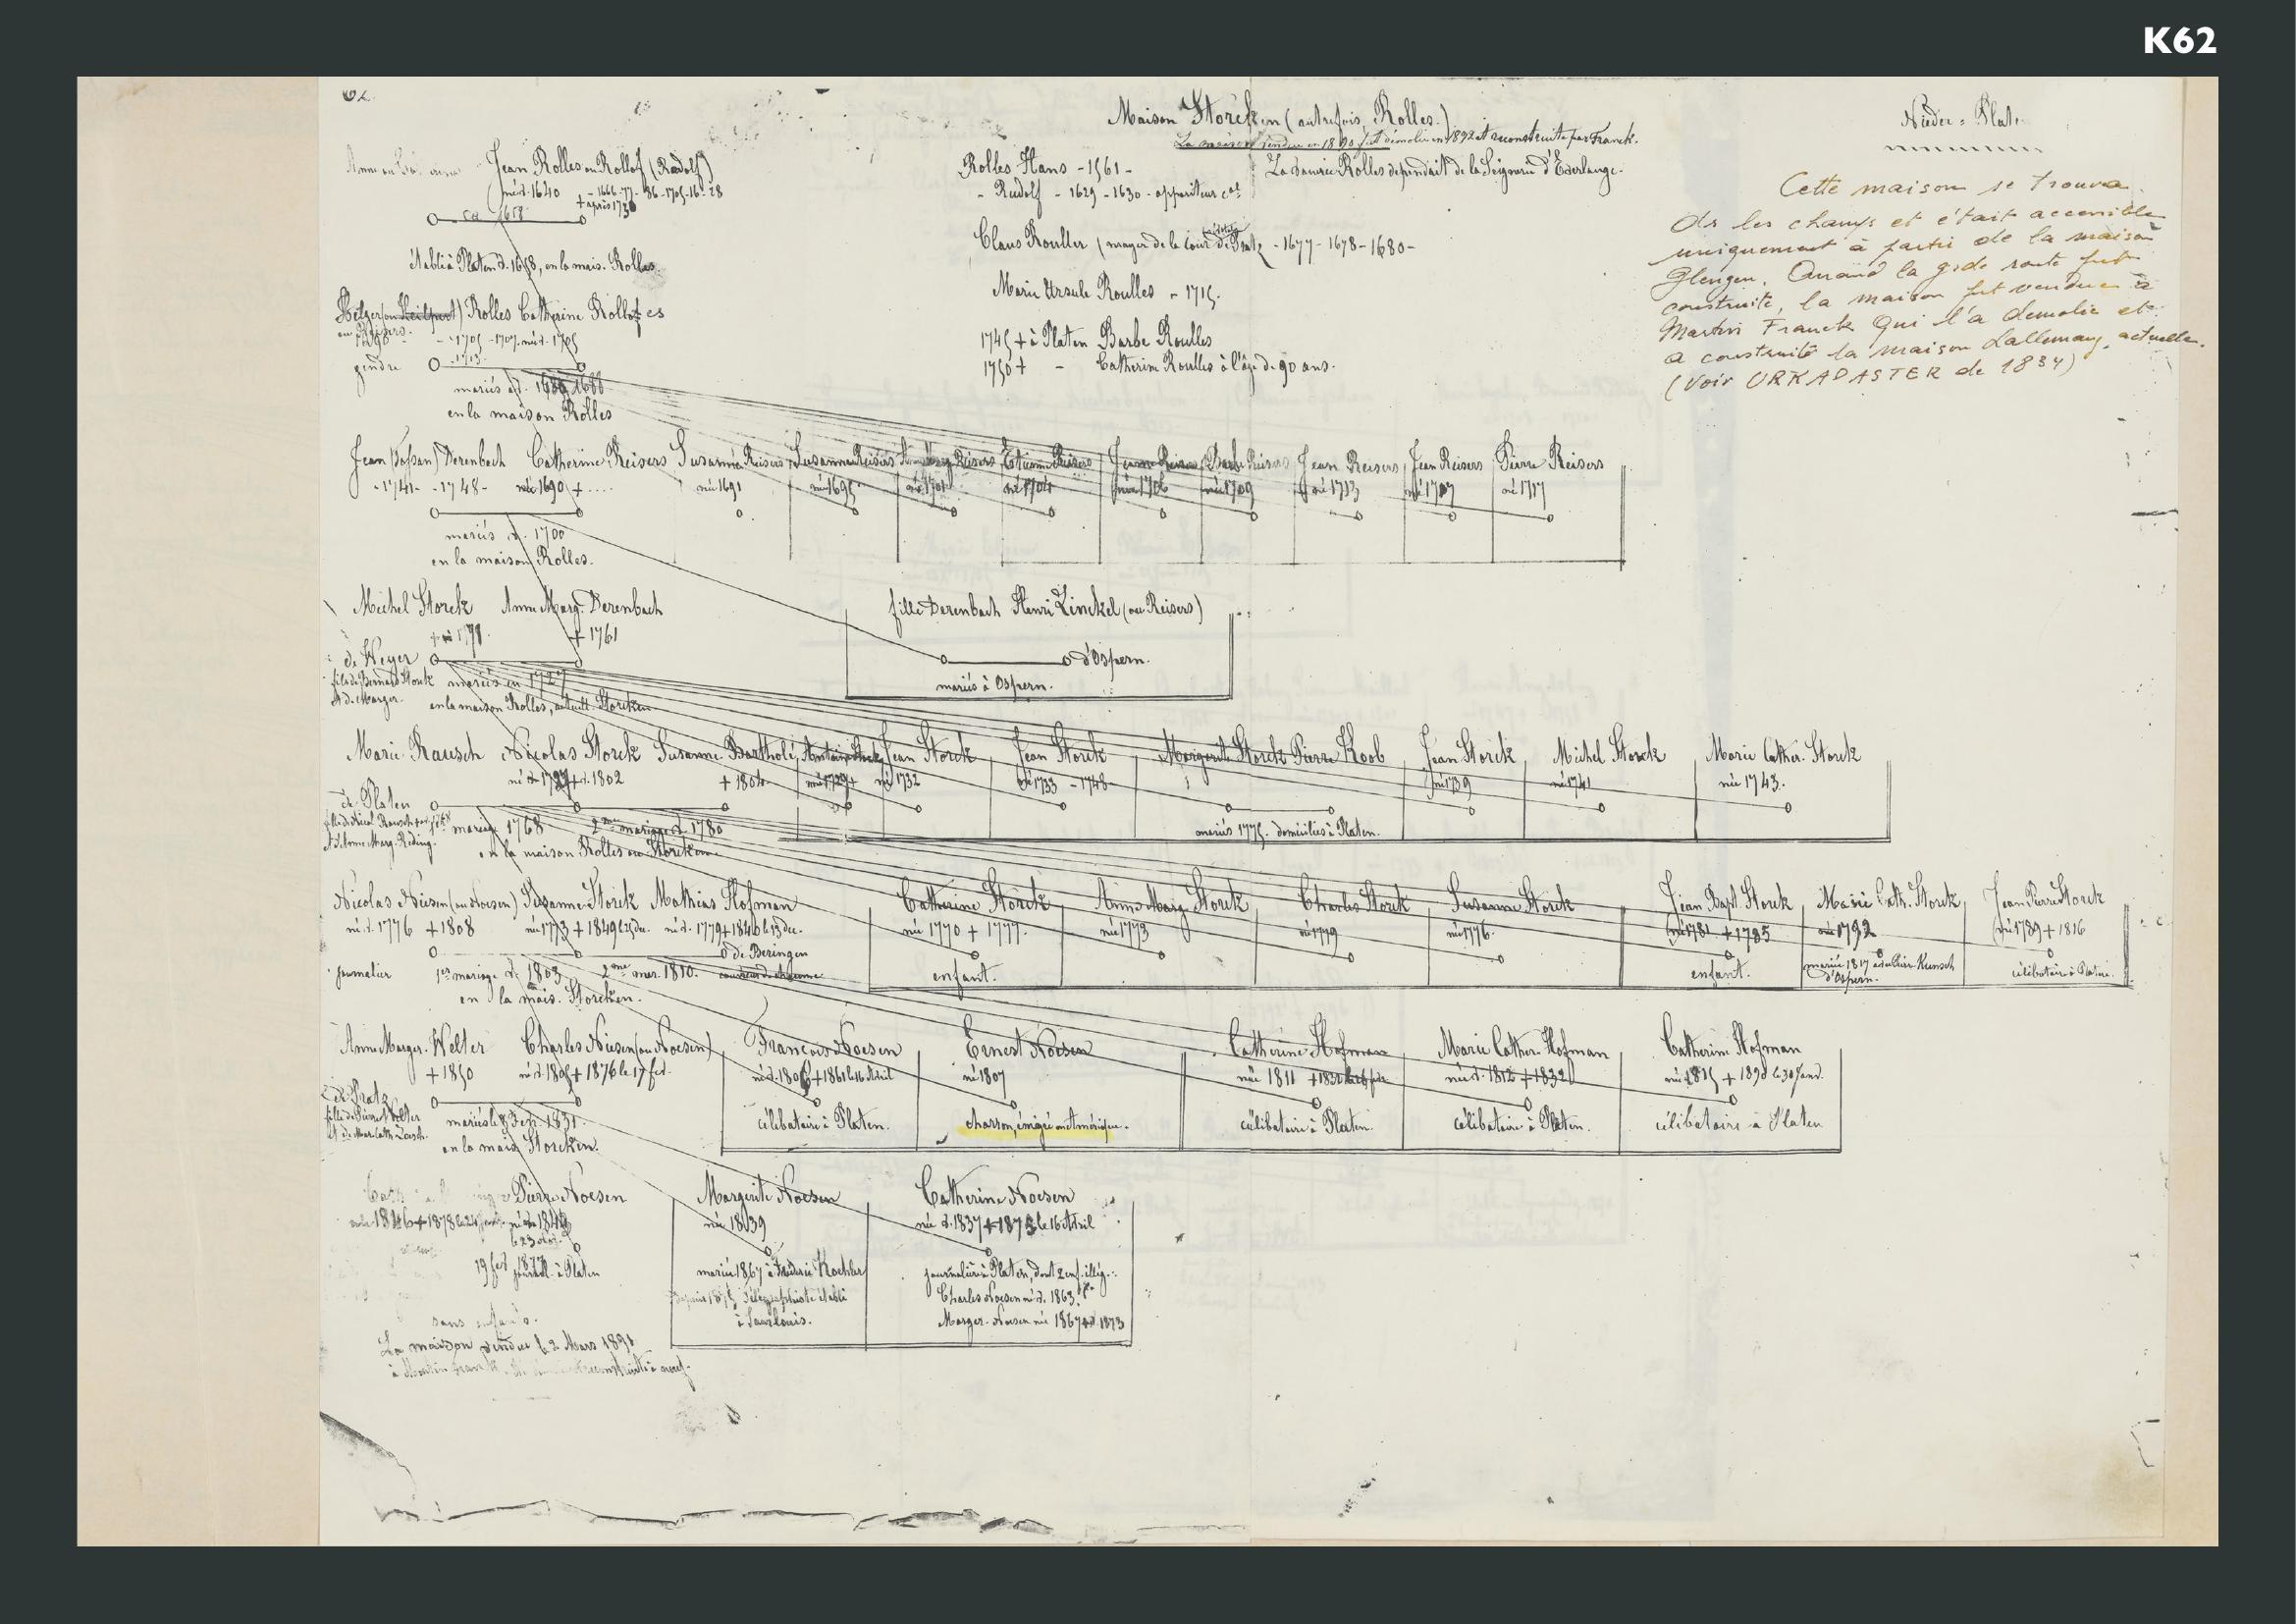 K62
62.
Maison Storcken (autrefois Rolles.)
La maison vendue en 1890 fut démolie en 1892 et reconstruite par Franck.
Nieder-Plat
Jean Rolles ou Rollof (Rudolf)
né d. 1640 - 1666-77- 86-1705-16-28
+ après 1730
ca 1658
établi à Platen d. 1658, en la mais. Rolles.
Rolles Hans - 1561 -
La Vouerie Rolles dépendait de la Seigneurie d'Everlange.
- Rudolf - 1629 - 1630 - appariteur
Claus Rouller (mayer de la Cour de Pratz - 1677 - 1678 - 1680 -
Marie Ursule Roulles - 1715.
1745 + à Platen Barbe Roulles
1750 + - Catherine Roulles à l'âge de 90 ans.
Cette maison se trouva
ds les champs et était accessible
uniquement à partir de la maison
Glengen. Quand la gde route fut
construite, la maison fut vendue à
Martin Franck qui l'a demolie et
a construite la maison Lallemang actuelle.
(Voir URKADASTER de 1834)
Rolles Catherine Rolles
ou Reisers
- 1705 - 1707
gendre
mariés d. 1688
en la maison Rolles
Jean Derenbach Catherine Reisers Susanne Reisers Susanne Reisers Reisers Etienne Reisers Jeanne Reisers Barbe Reisers Jean Reisers Jean Reisers Pierre Reisers
- 1741 - - 1748 - née 1690 + .... née 1691 née 1695 né 1701 né 1704 née 1706 née 1709 né 1713 né 1707 né 1717
mariés d. 1700
en la maison Rolles.
Michel Storck Anne Marg. Derenbach
+ 1761
fille Derenbach Henri Zinckel (ou Reisers)
de Weyer
d'Ospern.
fils de Bernard Storck mariés en 1727
et de Marger. en la maison Rolles, actuell. Storcken
mariés à Ospern.
Marie Rausch Nicolas Storck Susanne Bartholé Antoine Storck Jean Storck Jean Storck Margerite Storck Pierre Koob Jean Storck Michel Storck Marie Cather. Storck
+ d. 1802 + 1804 né 1729 + né 1732 né 1733 - 1748 né 1739 né 1741 née 1743.
de Platen
mariage 1768 2me mariage d. 1780
et d'Anne Marg. Reding. en la maison Rolles ou Storcken
mariés 1775. domiciliés à Platen.
Nicolas Niesen (ou Noesen) Susanne Storck Mathias Hofman Catherine Storck Anne Marg. Storck Charles Storck Susanne Storck Jean Bapt. Storck Marie Cath. Storck Jean Pierre Storck
né d. 1776 + 1808 née 1773 + 1849 le 25 dec. né d. 1779 + 1846 le 13 dec. née 1770 + 1777. née 1773 né 1779 née 1776. né 1781 + 1785 née 1792 né 1789 + 1816
de Beringen
journalier 1er mariage d. 1803 2me mar. 1810.
en la mais. Storcken.
enfant. enfant. mariée 1817 à Kunsch d'Ospern. célibataire à Platen.
Anne Marger. Welter Charles Niesen (ou Noesen) François Noesen Ernest Noesen Catherine Hofman Marie Cather. Hofman Catherine Hofman
+ 1850 né d. 1805 + 1876 le 17 fev. né d. 1806 + 1861 le 16 Avril né 1807 née 1811 + 1832 née d. 1812 + 1832 née 1815 + 1890 le 30 Janv.
de Pratz
fille de Pierre Welter mariés le 3 Fév. 1831
et de Mar. Cath. Loesch. en la mais Storcken.
célibataire à Platen. charron, émigré en Amérique. célibataire à Platen. célibataire à Platen. célibataire à Platen
Pierre Noesen Margerite Noesen Catherine Noesen
1846 + 1878 née 1839 née d. 1837 + 1875 le 16 Avril
19 fev 1877
journal. à Platen
mariée 1867 à Frédéric Koehler
depuis 1875 Télégraphiste établi
à Saarlouis.
journalière à Platen, dont 2 enf. illég.:
Charles Noesen né d. 1863.
Marger. Noesen née 1867 + d. 1873
sans enfants.
La maison vendue le 2 Mars 1890
à Martin Franck reconstruite à neuf.